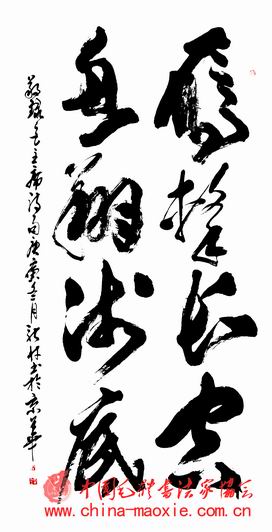 鹰击长空
鱼翔浅底
敬录毛主席诗句庚寅三月龙林书于京华
中国毛体书法家协会
www.china-maoxie.com.cn